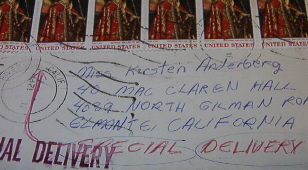 UNITED STATES UNITED STATES UNITED STATES UNITED STATES UNITED STATES
Miss Kirsten Anderberg
40 MAC CLAREN HALL
4024 NORTH GILMAN RO
EL MONTE, CALIFORNIA
SPECIAL DELIVERY
IAL DELIVERY